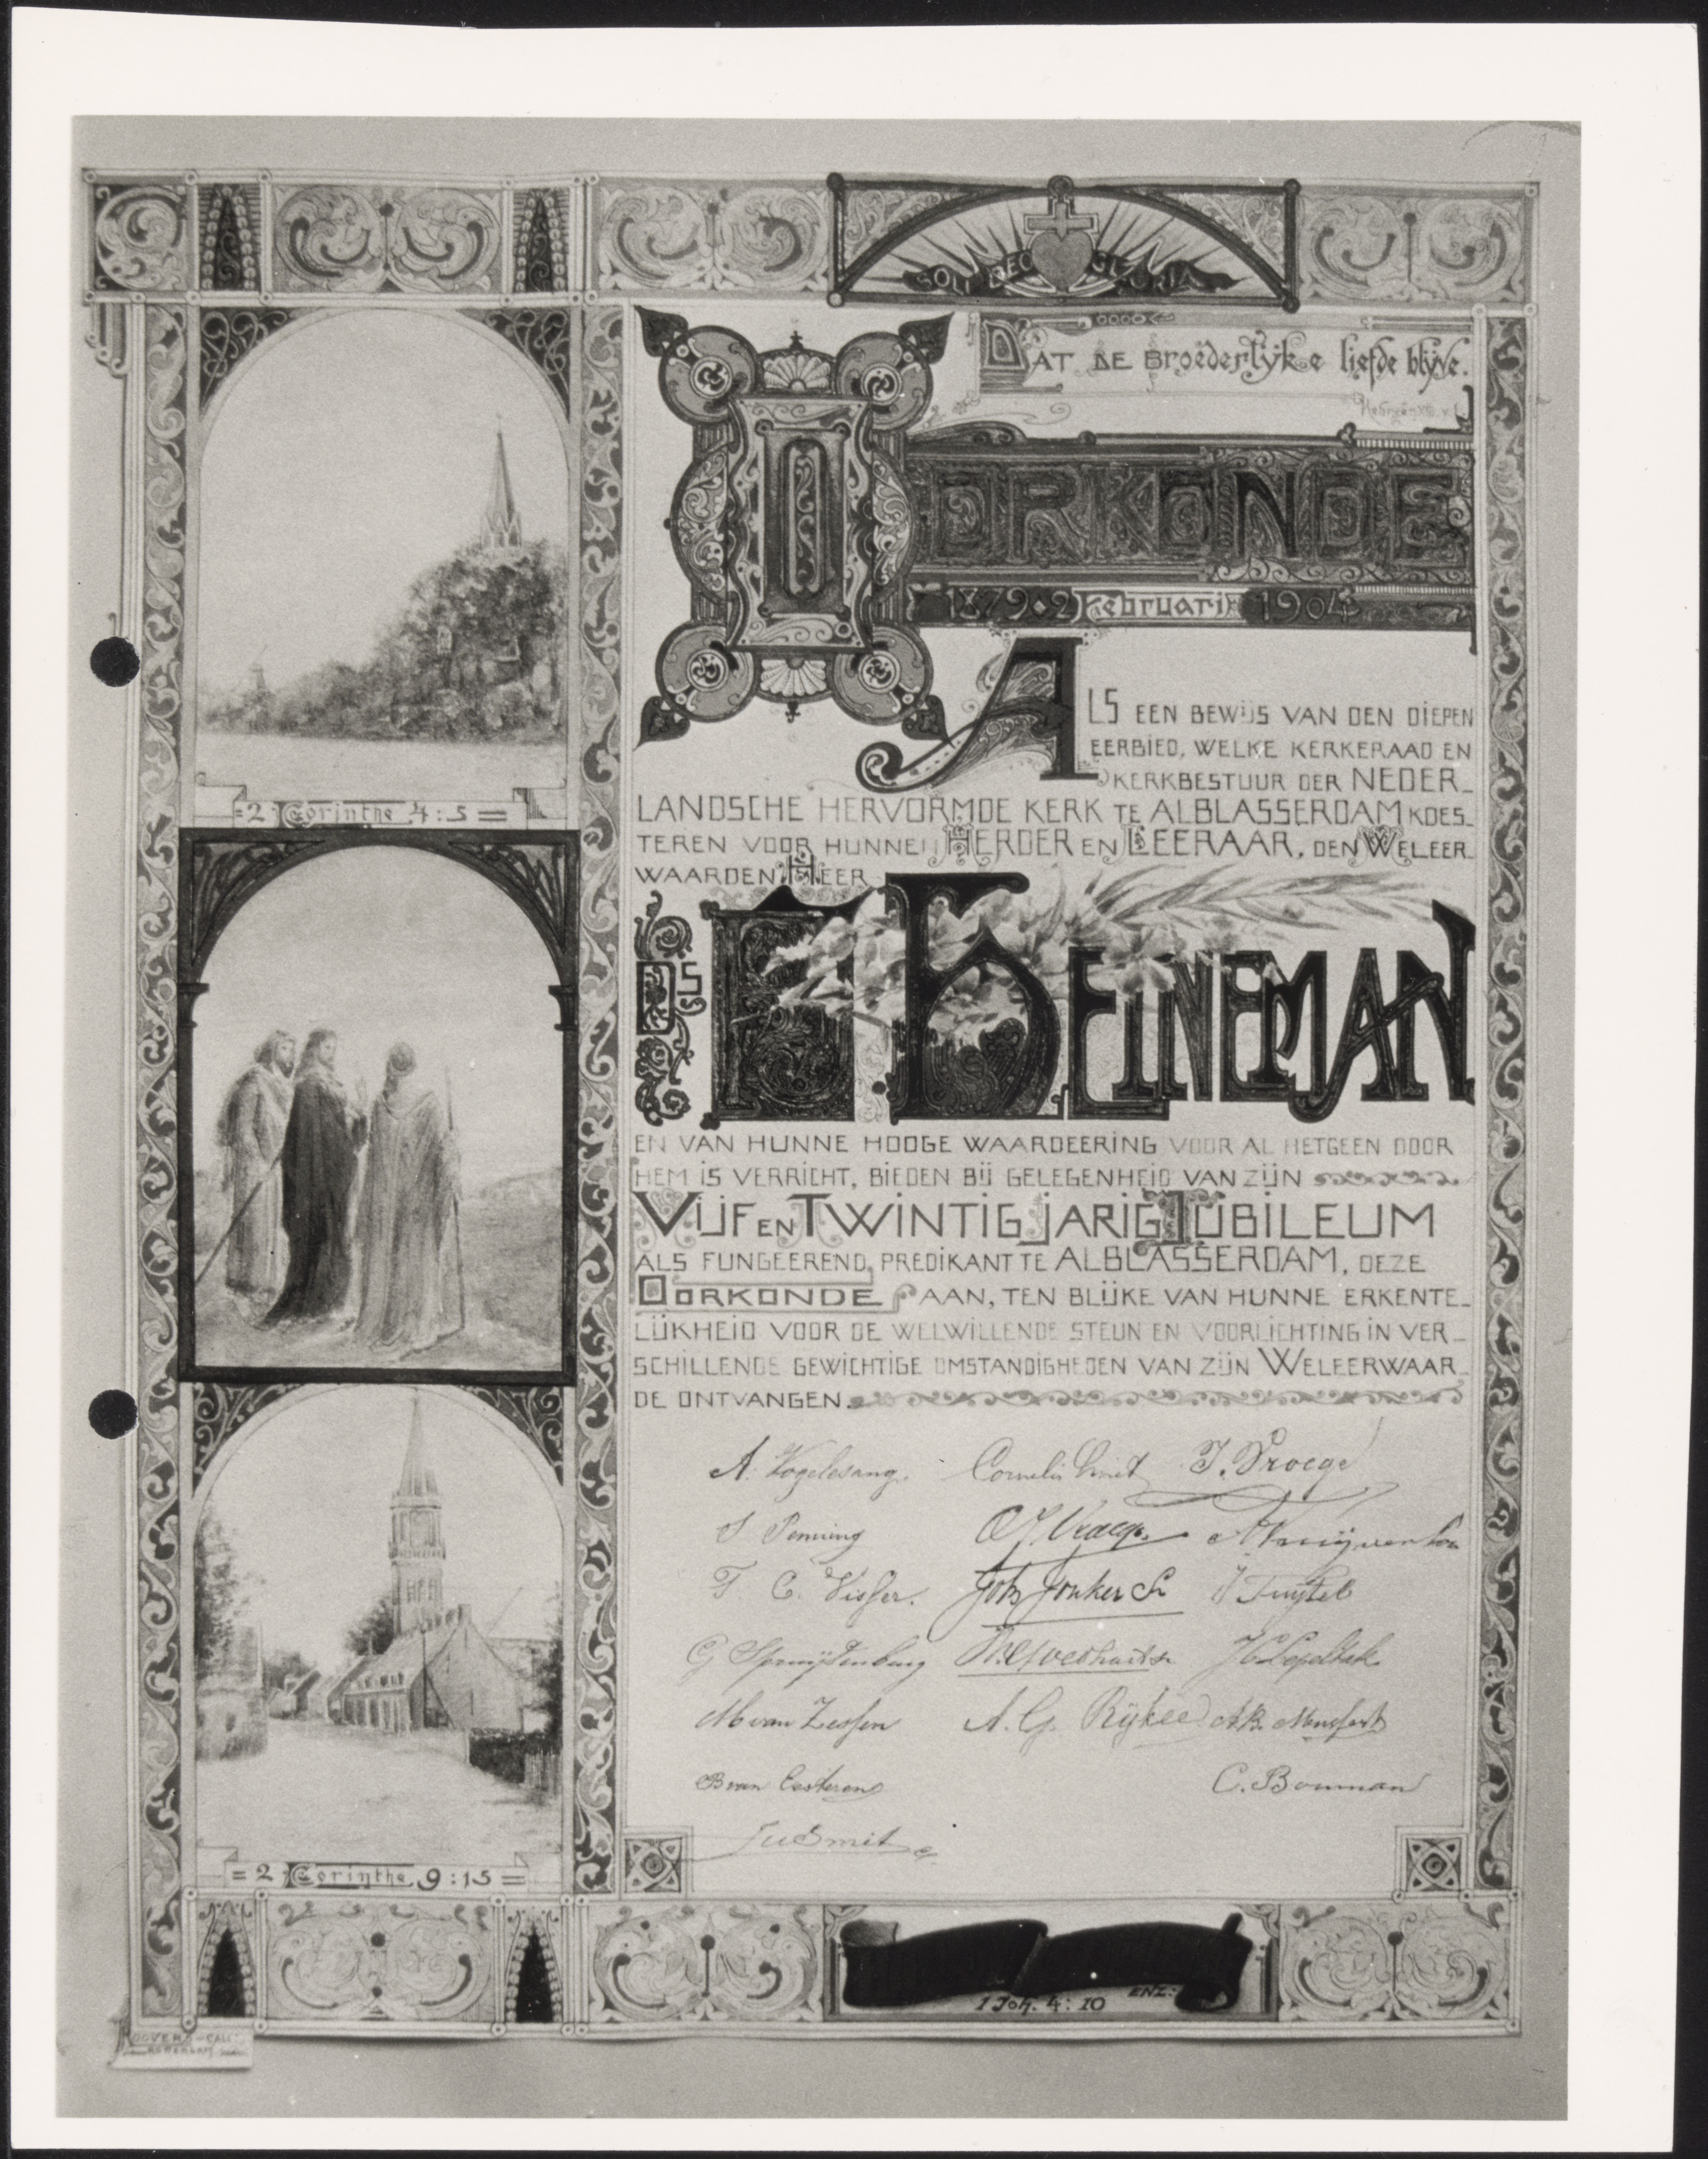 SOLI DEO GLORIA
DAT DE BROEDERLYKE LIEFDE BLYVE.
OORKONDE
1879 • 2 Februari 1904
ALS EEN BEWIJS VAN DEN DIEPEN
EERBIED, WELKE KERKERAAD EN
KERKBESTUUR DER NEDER-
LANDSCHE HERVORMDE KERK TE ALBLASSERDAM KOES-
TEREN VOOR HUNNEN HERDER EN LEERAAR, DEN WELEER-
WAARDEN HEER
DS HEINEMAN
EN VAN HUNNE HOOGE WAARDEERING VOOR AL HETGEEN DOOR
HEM IS VERRICHT, BIEDEN BIJ GELEGENHEID VAN ZIJN
VIJF EN TWINTIG JARIG JUBILEUM
ALS FUNGEEREND PREDIKANT TE ALBLASSERDAM, DEZE
OORKONDE AAN, TEN BLIJKE VAN HUNNE ERKENTE-
LIJKHEID VOOR DE WELWILLENDE STEUN EN VOORLICHTING IN VER-
SCHILLENDE GEWICHTIGE OMSTANDIGHEDEN VAN ZIJN WELEERWAAR-
DE ONTVANGEN.
A. Vogelesang. Cornelis Smit
S Penning
T. C. Visser. Joh Jonker
G Spruijtenburg
M van Zessen A. G. Rijkee
B van Eesteren C. Bouman
Smit
= 2 Corinthe 4:5 =
= 2 Corinthe 9:15 =
1 Joh. 4:10 ENZ.